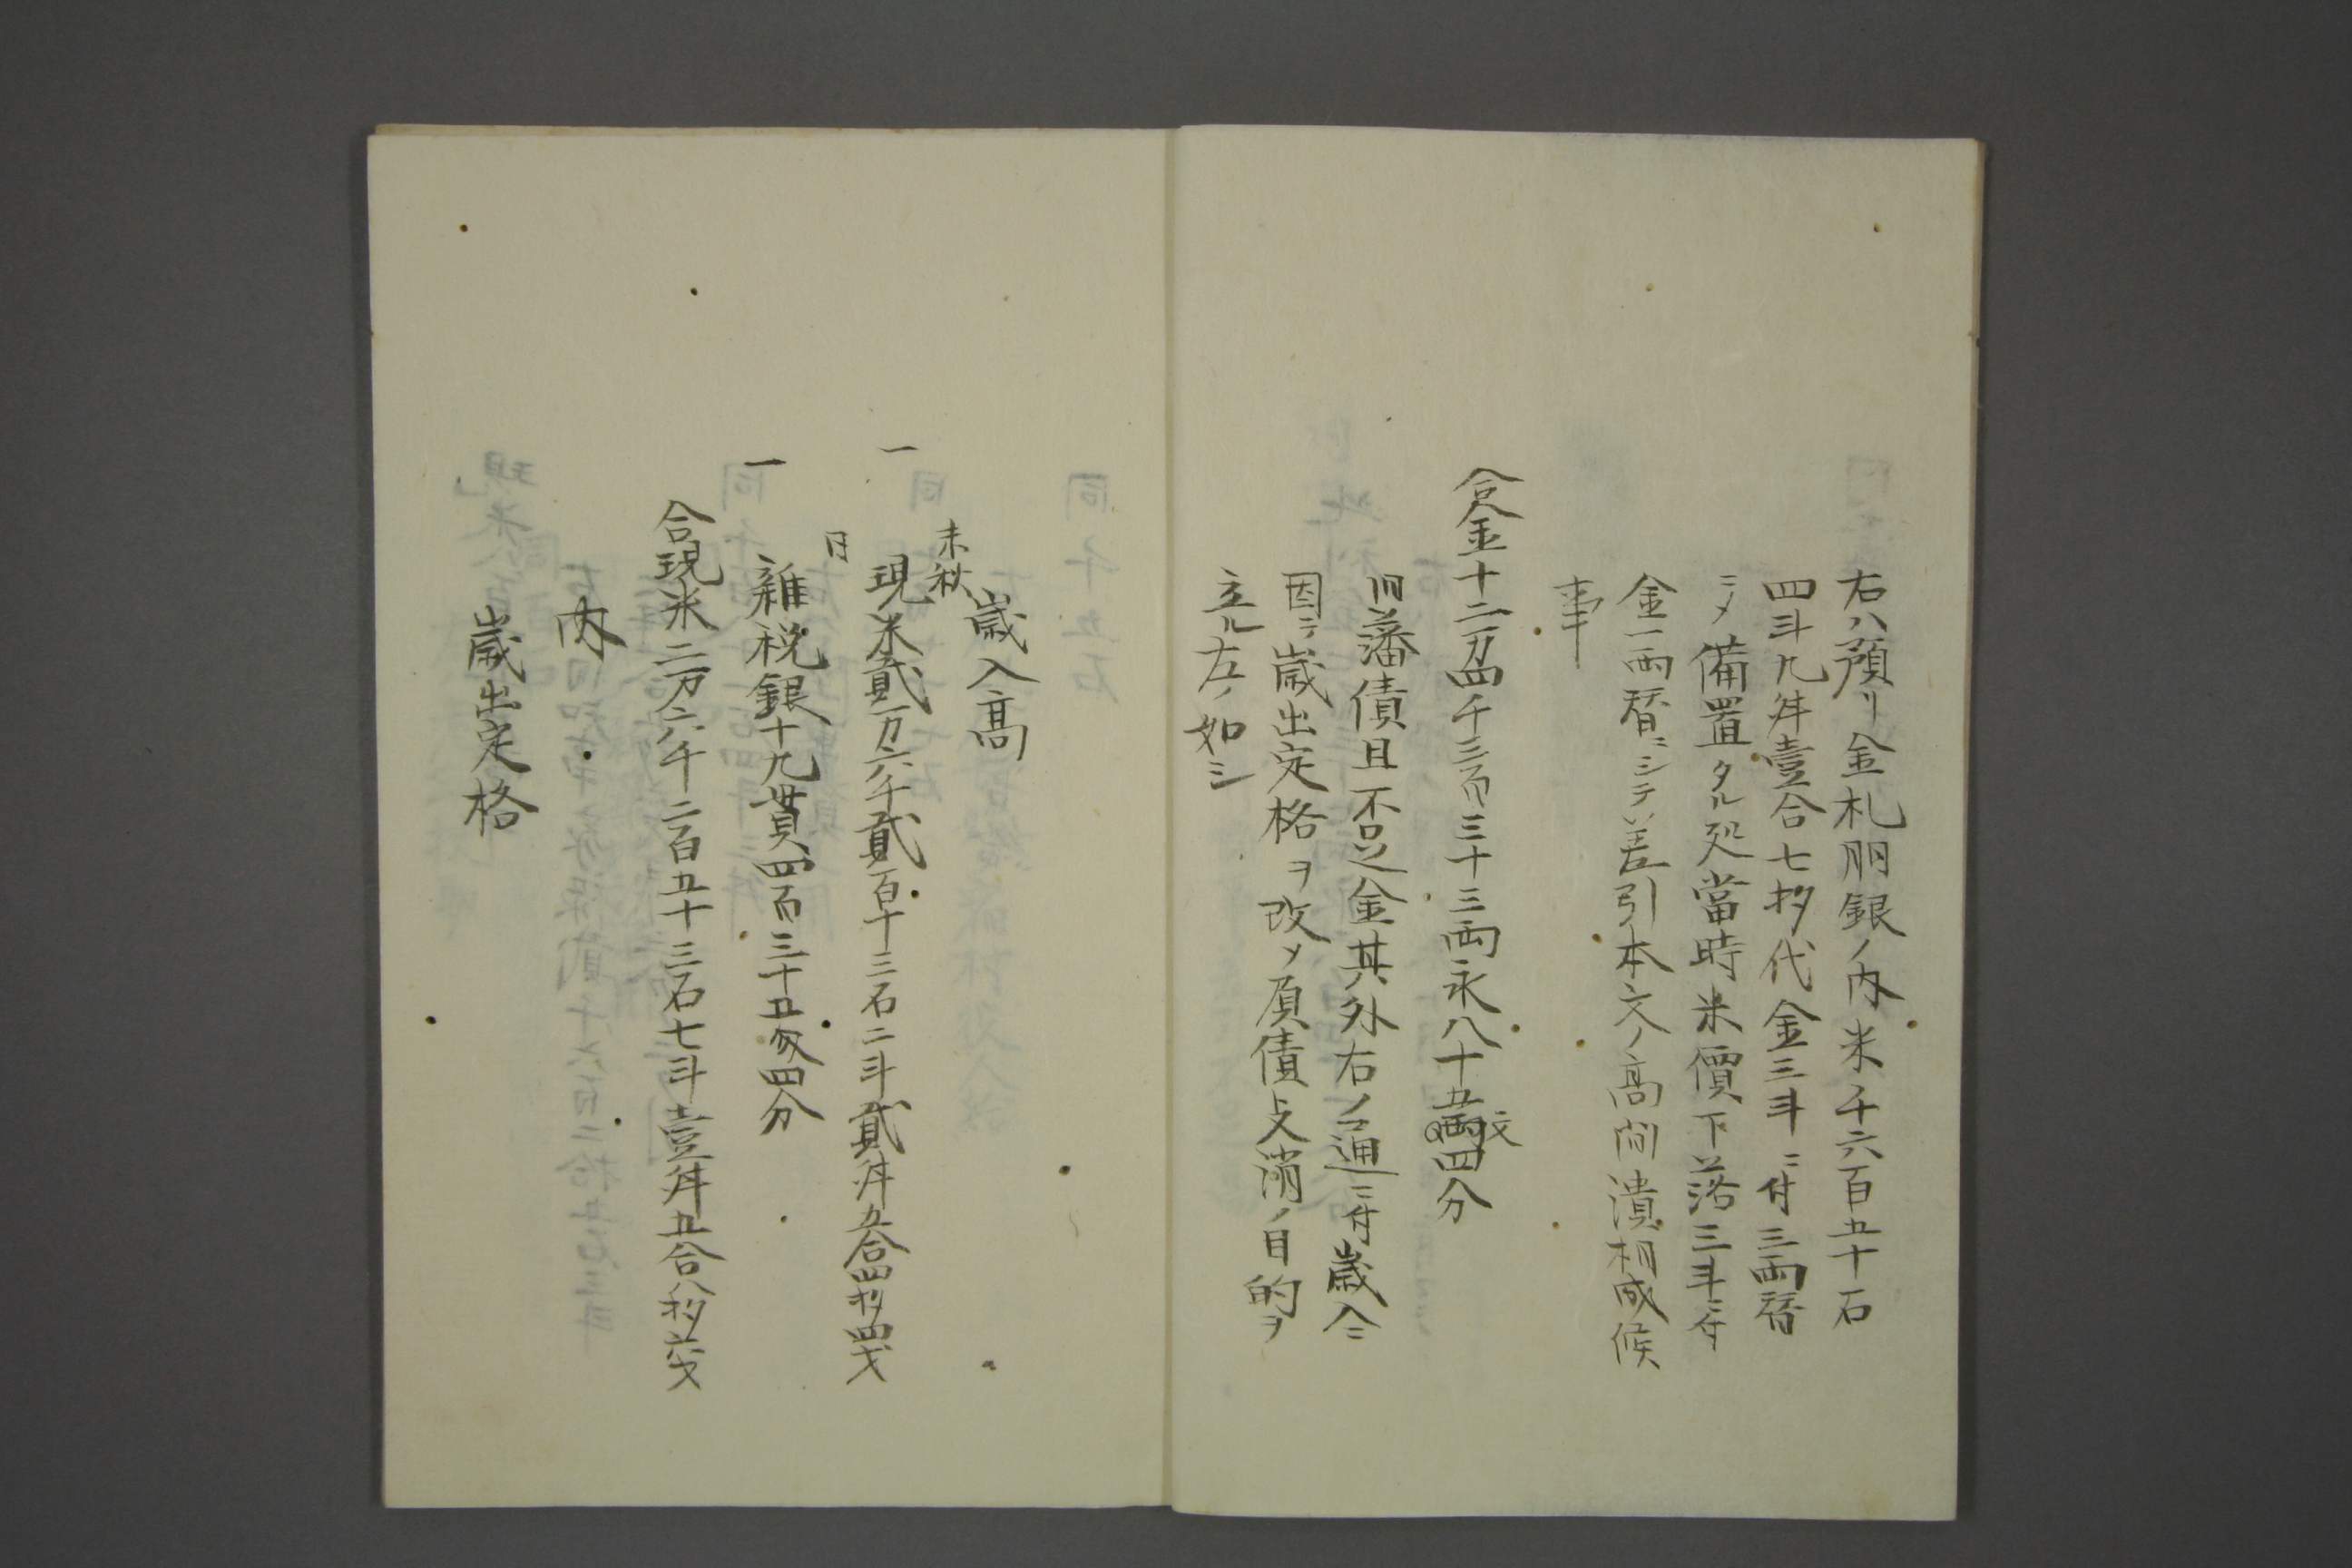 右ハ預リ金札用銀ノ内米千六百五十石
四斗九舛壹合七抄代金三斗ニ付三両替
ニメ備置タル処當時米價下落三斗ニ付
金一両替ニシテハ差引本文ノ高間潰相成候
事
合金十二万四千三百三十三両永八十五文四分
旧藩債且不足金其外右ノ通ニ付歳入ニ
因テ歳出定格ヲ改メ負債支消ノ目的ヲ
立ル左ノ如シ
歳入高
未秋
一 現米貳万六千貳百十三石二斗貳舛五合四抄四才
同
一 雑税銀十九貫四百三十五匁四分
合現米二万六千二百五十三石七斗壹舛五合八抄六才
内
歳出定格